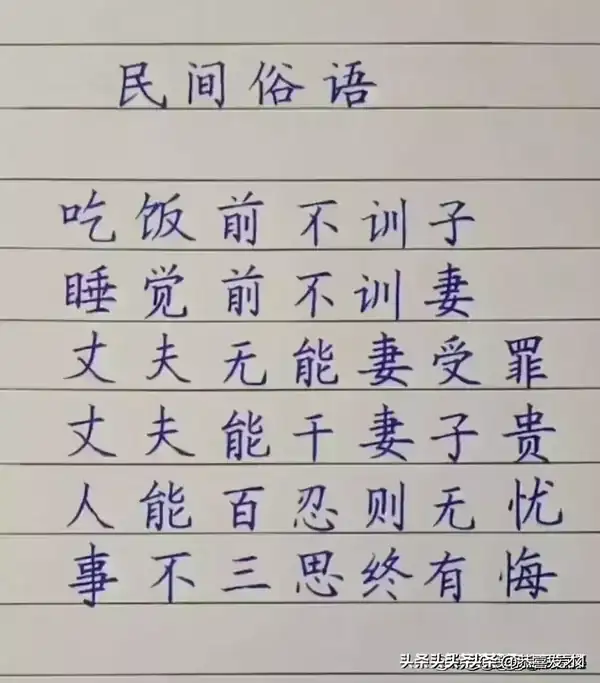 民间俗语
吃饭前不训子
睡觉前不训妻
丈夫无能妻受罪
丈夫能干妻子贵
人能百忍则无忧
事不三思终有悔